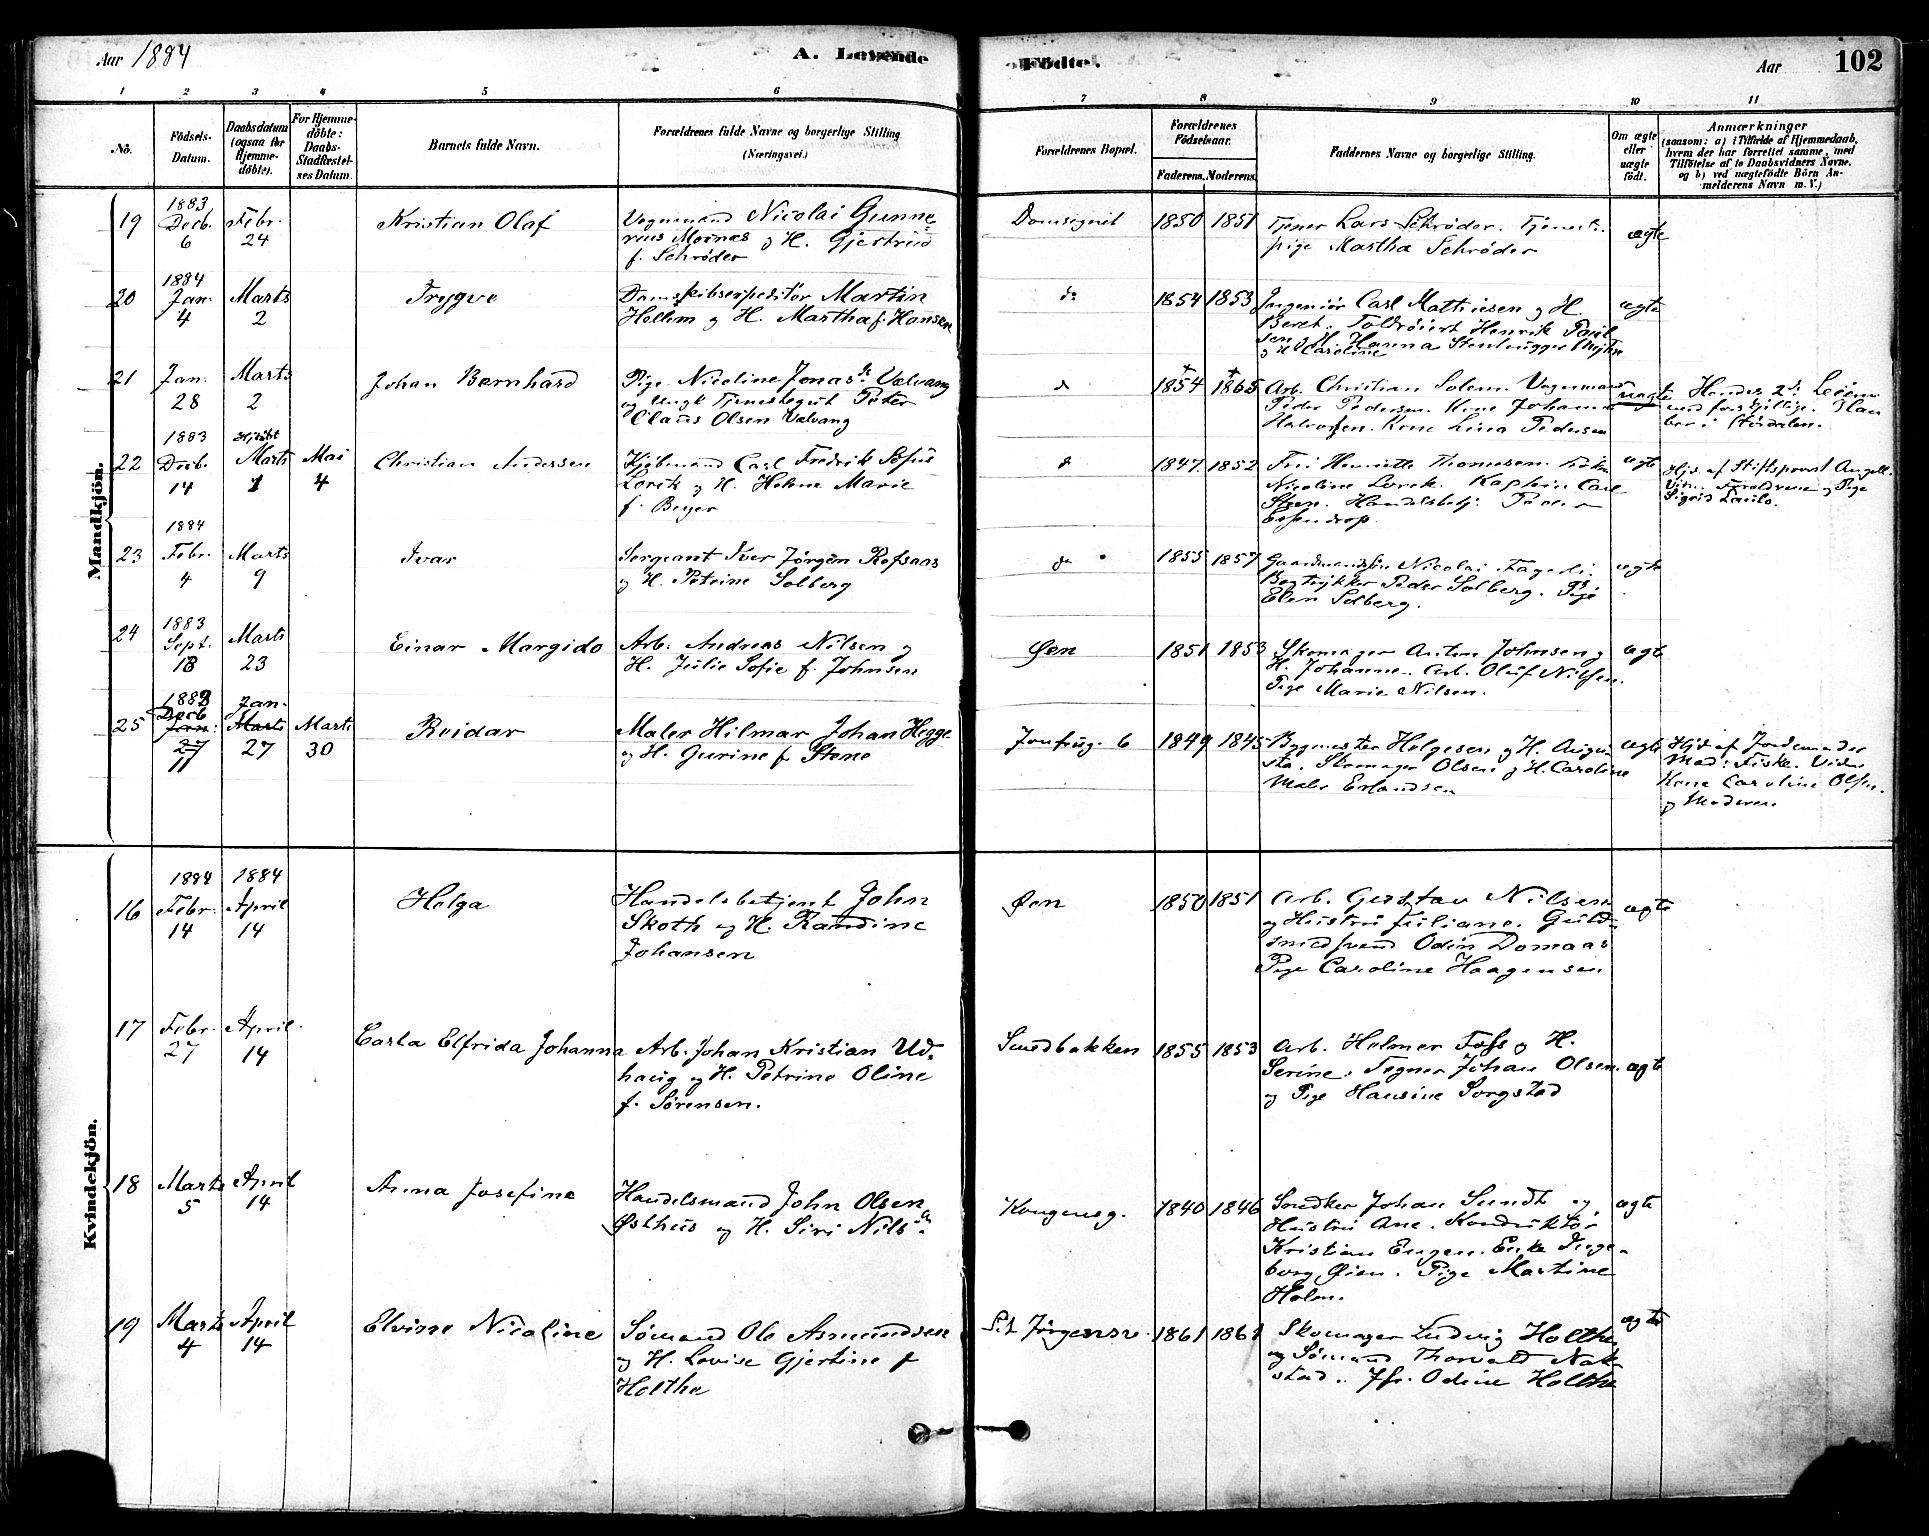 Aar 1884
A. Levende
Födte.
Aar 102
1 2 3 4 5 6 7 8 9 10 11
No.
Födsels-
Datum.
Daabsdatum
(ogsaa for
Hjemme-
döbte).
For Hjemme-
döbte:
Daabs-
Stadfæstel-
ses Datum.
Barnets fulde Navn.
Forældrenes fulde Navne og borgerlige Stilling
(Næringsvei.)
Forældrenes Bopæl.
Forældrenes
Födselsaar.
Faderens. Moderens.
Faddernes Navne og borgerlige Stilling.
Om ægte
eller
uægte
født.
Anmærkninger
(saasom: a) i Tilfælde af Hjemmedaab,
hvem der har forrettet samme, med
Tilföielse af to Daabsvidners Navne.
og b) ved uægtefödte Börn An-
melderens Navn m. V.)
Mandkjön.
19
1883
Decb.
6
Febr.
24
Kristian Olaf
Vognmand Nicolai Gunne-
rius Mornæs og H. Gjertrud
f. Schrøder
1850 1851
Tjener Lars Schrøder. Tjeneste
pige Martha Schrøder
ægte
20
1884
Jan.
4
Marts
2
Trygve
Damskibsexpeditør Martin
Hollem og H. Martha f. Hansen
do
1854 1853
Ingeniør Carl Mathiesen og H.
Beret. Toldrøiert Henrik
og H. Hanna Stenhugger
og H. Caroline
ægte
21
Jan.
28
Marts
2
Johan Bernhard
Pige Nicoline Jonasdr. Vælvang
og Ungk Tjenestegut Peter
Claus Olsen Vælvang
d
1854 1865
Arb. Christian Solem. Vognmand
Peder Pedersen. Kone Johanna
Halvorsen. Kone Lina Pedersen
uægte
Hendes 2det Leierm
med forskjellige. Han
bor i Stördalen.
22
1883
Decb.
14
Hjdöbt
Marts
1
Mai
4
Christian Andersen
Kjøbmand Carl Fredrik Sofus
Lorck og H. Helene Marie
f. Beyer
d
1847 1852
Thomesen. Frøken
Nicoline Lorck. Kaptein Carl
Steen. Handelsbetj. Peder
Essendrop.
ægte
Hjd. af Stiftsprovst Angell.
Vidn. Forældrene og Pige
Sigrid
23
1884
Febr.
4
Marts
9
Ivar
Sergeant Iver Jørgen Rofsaas
og H. Petrine Solberg
do
1855 1857
Gaardmandssøn Nicolai Fagerli
Bogtrykker Peder Solberg. Pige
Elen Solberg.
ægte
24
1883
Sept.
18
Marts
23
Einar Margido
Arb. Andreas Nilsen og
H. Julie Sofie f. Johnsen
Øen
1851 1853
Skomager Anton Johnsen og
H. Johanne. Arb. Oluf Nilsen.
Pige Marie Nilsen.
ægte
25
1883
Decb
Jan.
27
11
Jan.
Marts
27
Marts
30
Reidar
Maler Hilmar Johan Hegge
og H. Gurine f. Stene
Jomfrug. 6
1849 1845
Bygmester Helgesen og H. Augu
sta. Skomager Olsen og H. Caroline
Maler Erlandsen
ægte
Hjd. af Jordemoder
Mad: Fiske. Vidn.
Kone Caroline Olsen.
og Moderen
Kvindekjön.
16
1884
Febr.
14
1884
April
14
Helga
Handelsbetjent John
Skoth og H. Randine
Johansen
Øen
1850 1851
Arb. Gustav Nilsen
og Hustru Juliane. Guld-
smedsvend Odin Domaas
Pige Caroline Haagensen
ægte
17
Febr.
27
April
14
Carla Elfrida Johanna
Arb. Johan Kristian Ud-
haug og H. Petrine Oline
f. Sørensen.
Smedbakken
1855 1853
Arb. Helmer Foss og H.
Serine. Tegner Johan Olsen.
og Pige Hansine Sorgstad
ægte
18
Marts
5
April
14
Anna Josefine
Handelsmand John Olsen
Østhus og H. Siri Nilsdr.
Kongensg.
1840 1846
Snedker Johan Sundt og
Hustru Ane. Konduktør
Kristian Engen. Enke Inge-
borg Øien. Pige Martine
Holm.
ægte
19
Marts
4
April
14
Elvine Nicoline
Sømand Ole Asmundsen
og H. Lovise Gjertine f
Holthe
St Jørgensv.
1861 1861
Skomager Ludvig Holthe
og Sømand Thorvald Nak-
stad. Jfr. Odine Holthe
ægte